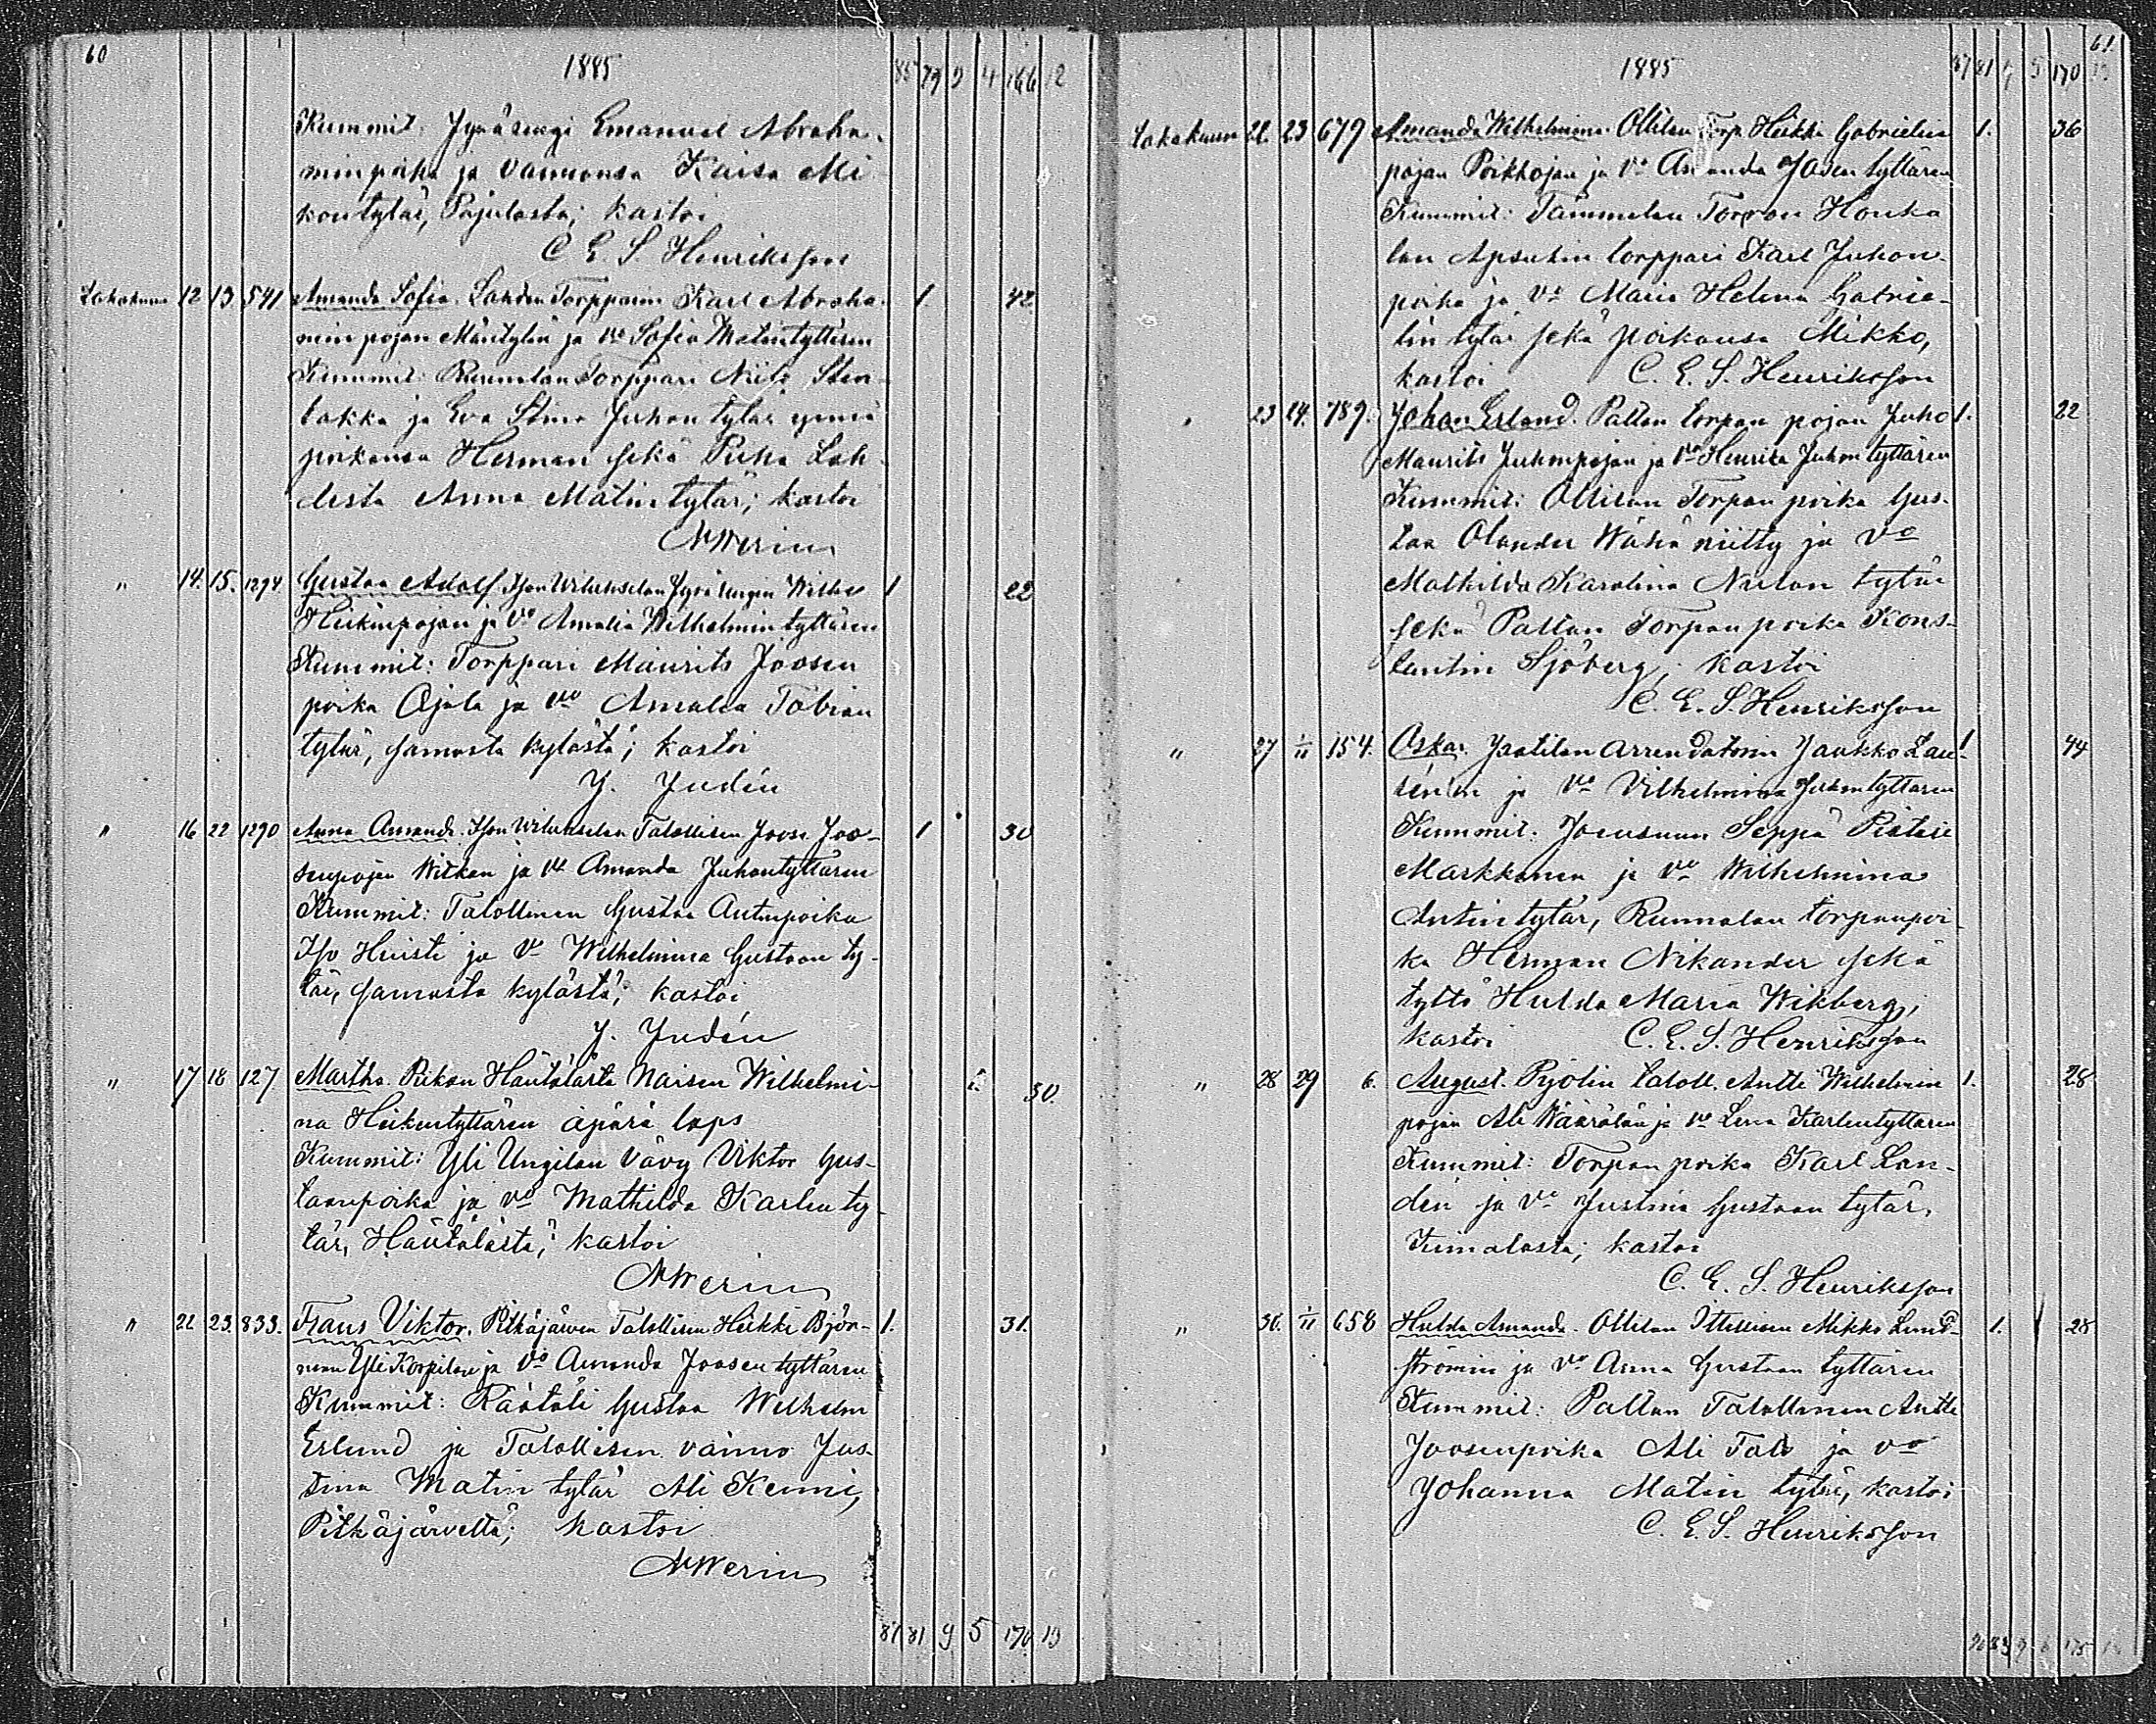 60
1885
85 79 9 4 166 12
Kummit: Jyväsungi Emanuel Abraha-
minpoika ja vaimonsa Kaisa Mi
kontytär, Pajulasta; kastoi
C. E. S. Henriksson
Lokakuun 12 13 541 Amanda Sofia. Lahden Torpparin Karl Abraha- 1. 42.
minpojan Mäntylän ja vo Sofia Matintyttären
Kummit: Runnolan Torppari Niilo Sten-
bakka ja Eva Stina Juhontytär ynnä
poikansa Herman sekä Piika Lah-
desta Anna Matintytär; kastoi
" 14. 15. 1294 Gustaa Adolf Heikinpojan ja Vo Amalia Wilhelmintyttären 1 22
Kummit: Torppari Maurits Joosen
poika Ojala ja vo Amalia Tobian
tytär, samasta kylästä; kastoi
J. Judén
" 16 22 1290 Anna Amanda. Talollisen Joose Joo- 1 30
senpojan Witkan ja vo Amanda Juhontyttären
Kummit: Talollinen Gustaa Antinpoika
Iso Heisti ja Vo Wilhelmina Gustaan ty-
tär, samasta kylästä; kastoi
J. Judén
" 17 18 127 Martha. Piikan Häntälästä Naisen Wilhelmi- 1. 30.
na Heikintyttären äpärä laps
Kummit: Yli Ungilan vävy Viktor Gus-
taanpoika ja vo Mathilda Karlen ty-
tär, Häntälästä; kastoi
" 22 23. 833. Frans Viktor. Pitkäjärven Talollisen Heikki Björ- 1. 31.
man Yli Korpilan ja Vo Amanda Joosentyttären
Kummit: Räätäli Gustaa Wilhelm
Erlund ja Talollisen vaimo Jus-
tina Matin tytär Ali Kenni,
Pitkäjärveltä; kastoi
87 81 9 5 170 13
61.
1885
87 81 9 5 170 13
Lokakuun 22. 23 679 Amanda Wilhelmina. Ollilan Torp. Heikki Gabrielin 1. 36
pojan Poikkojan ja Vo Amanda Joosentyttären
Kummit: Tammelan Torron Honka
lan Apsutin torppari Karl Juhon
poika ja Vo Maria Helena Gabrie-
lin tytär sekä poikansa Mikko,
kastoi C. E. S. Henriksson
" 23 24. 789. Johan Erland. Paltan torpan pojan Juho 1. 22
Maurits Juhonpojan ja Vo Henrika Juhontyttären
Kummit: Ollilan Torpan poika Gus-
taa Olander Wähä niitty ja Vo
Mathilda Karolina Niilon tytär
sekä Paltan Torpan poika Kons-
tantin Sjöberg; kastoi
C. E. S. Henriksson
" 27 1/11 154. Oskar. Jaatilan Arrendatorin Jaakko Lau- 1 44
sénin ja Vo Vilhelmina Juhontyttären
Kummit: Jocusuun Seppä Pietari
Markkanen ja Vo Wilhelmina
Antintytär, Runnolan torpanpoi-
ka Herman Nikander sekä
tyttö Hulda Maria Wikberg;
kastoi C. E. S. Henriksson
" 28 29 6. August. Pyölin taloll. Antti Wilhelmin 1. 28
pojan Ali Wäärälän ja vo Lena Karlentyttären
Kummit: Torpan poika Karl Lan-
dén ja Vo Justina Gustaan tytär,
kastoi
C. E. S. Henriksson
" 30. 1/11 658 Hulda Amanda. Ollilan Itsellisen Mikko Lund- 1. 28
strömin ja vo Anna Gustaan tyttären
Kummit: Paltan Talollinen Antti
Joosenpoika Ali Talo ja vo
Johanna Matin tytär, kastoi
C. E. S. Henriksson